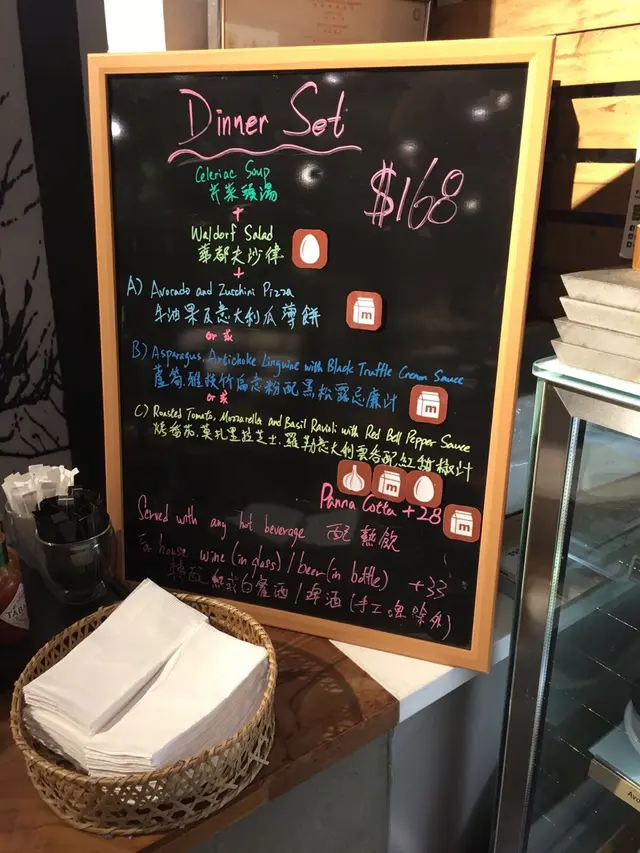 Dinner Set
$168
Celeriac Soup
芹菜頭湯
+
Waldorf Salad
華都夫沙律
+
A) Avocado and Zucchini Pizza
牛油果及意大利瓜薄餅
or 或
B) Asparagus, Artichoke Linguine with Black Truffle Cream Sauce
蘆筍,雅枝竹扁意粉配黑松露忌廉汁
or 或
C) Roasted Tomato, Mozzarella and Basil Ravioli with Red Bell Pepper Sauce
烤番茄,莫扎里拉芝士,羅勒意大利雲吞配紅甜椒汁
m
m
m
Panna Cotta +28
m
Served with any hot beverage 配熱飲
For house wine (in glass) / beer (in bottle) +33
轉配紅或白餐酒 / 啤酒 (手工啤除外)
TAB